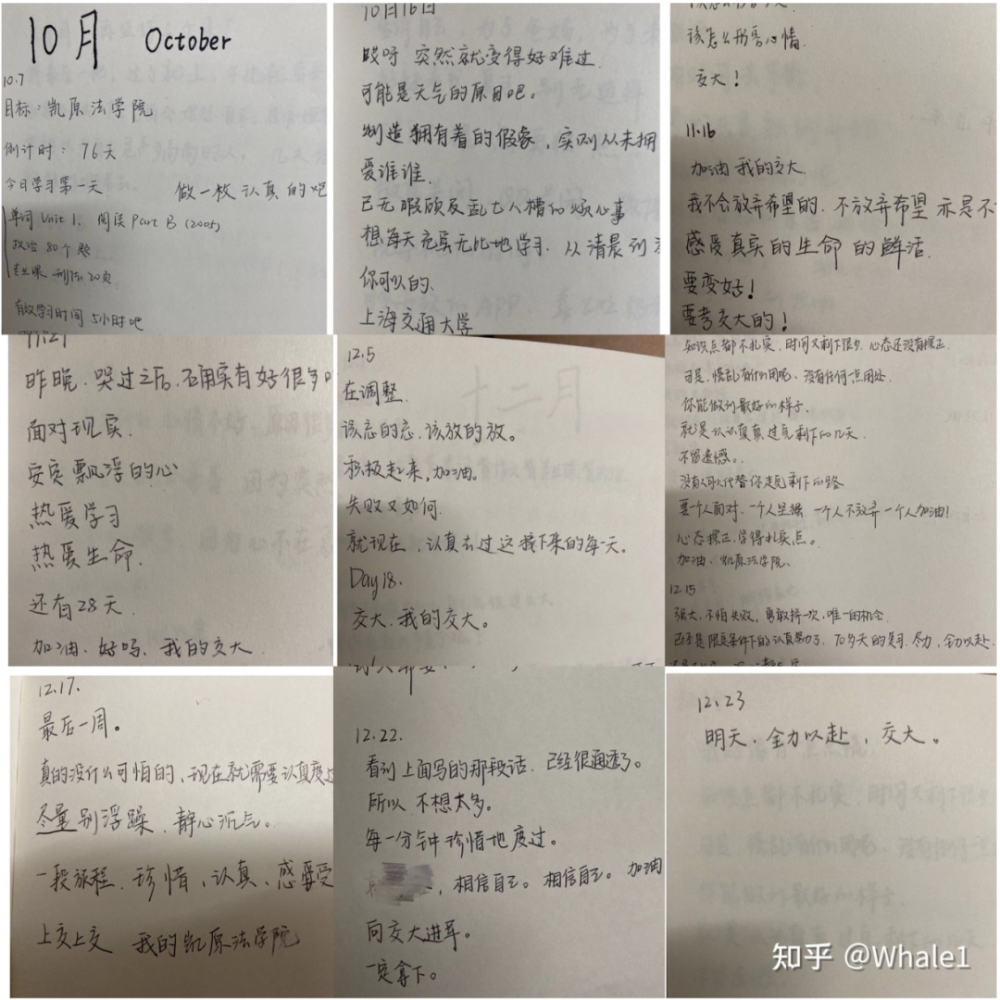 10月 October
10.7
目标：凯原法学院
倒计时：76天
今日学习第一天
做一枚认真的吧
单词 Unit 1. 阅读 Part B (2005)
政治 80个题
专业课 刑法20页
有效学习时间 5小时吧
10月16日
哎呀 突然就变得好难过
可能是天气的原因吧。
制造拥有着的假象，实则从未拥
爱谁谁
已无暇顾及乱七八糟的烦心事
想每天充实无比地学习 从清晨到
你可以的.
上海交通大学
该怎么形容心情.
交大！
11.16
加油 我的交大.
我不会放弃希望的. 不放弃希望 亦是不
感受真实的生命的鲜活.
要变好！
要考交大的！
11.21
昨晚. 哭过之后. 确实有好很多
面对现实.
安定飘浮的心
热爱学习
热爱生命.
还有28天.
加油. 好吗. 我的交大
12.5
十二月
在调整.
该忘的忘. 该放的放。
积极起来，加油。
失败又如何.
就现在，认真去过这接下来的每一天。
Day 18.
交大. 我的交大。
知识点都不扎实. 时间又剩下很少. 心态还没有摆正.
可是. 慌乱有什么用呢. 没有任何一点用处.
你能做到最好的样子.
就是认认真真过完剩下的几天.
不留遗憾。
没有人可以代替你走完剩下的路
要一个人面对. 一个人坚强 一个人不放弃 一个人加油！
心态摆正. 学得扎实点。
加油. 凯原法学院.
12.15
强大. 不怕失败. 勇敢拼一次. 唯一的机会
已经是限定条件下的认真努力了. 70多天的复习. 尽力. 全力以赴.
12.17.
最后一周。
真的没什么可怕的. 现在就需要认真度过
尽量别浮躁. 静心沉气。
一段旅程. 珍惜、认真、感受
上交上交 我的凯原法学院
12.22.
看到上面写的那段话. 已经很通透了。
所以. 不想太多.
每一分钟珍惜地度过.
，相信自己. 相信自己. 加油
向交大进军.
一定拿下。
12.23
明天. 全力以赴，交大。
知乎 @Whale1